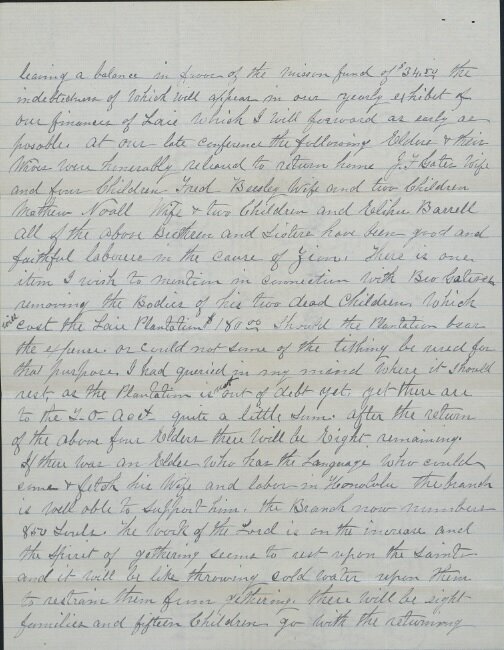 leaving a balance in favor of the mission fund of $34.54 the
indebtedness of which will appear in our yearly exhibit of
our finances of Laie which I will forward as early as
posable. at our late conference the following Elders & their
Wives were honerably relieved to return home J. F Gates Wife
and four Children Fred Beesley Wife and two Children
Mathew Noall Wife & two Children and Elihu Barrell
all of the above Bretheren and Sisters have been good and
faithful laborers in the cause of Zion. There is one
item I wish to mention in connection with Bro Gates
removing the Bodies of his two dead Children, which
will
cost the Laie Plantation $180.00 Should the Plantation bear
the expence. or could not some of the tithing be used for
that purpose. I had queried in my mind where it should
rest as the Plantation is not out of debt yet. yet there are
to the T.O. acct quite a little sum. after the return
of the above four Elders there will be Eight remaining.
If there was an Elder who has the Language who could
come & fetch his Wife and labor in Honolulu The branch
is well able to support him. the Branch now numbers
850 Souls. The work of the Lord is on the increase and
the Spirit of gethering seems to rest upon the Saints
and it will be like throwing cold water upon them
to restrain them from gethering. there will be eight
families and fifteen Children go with the returning